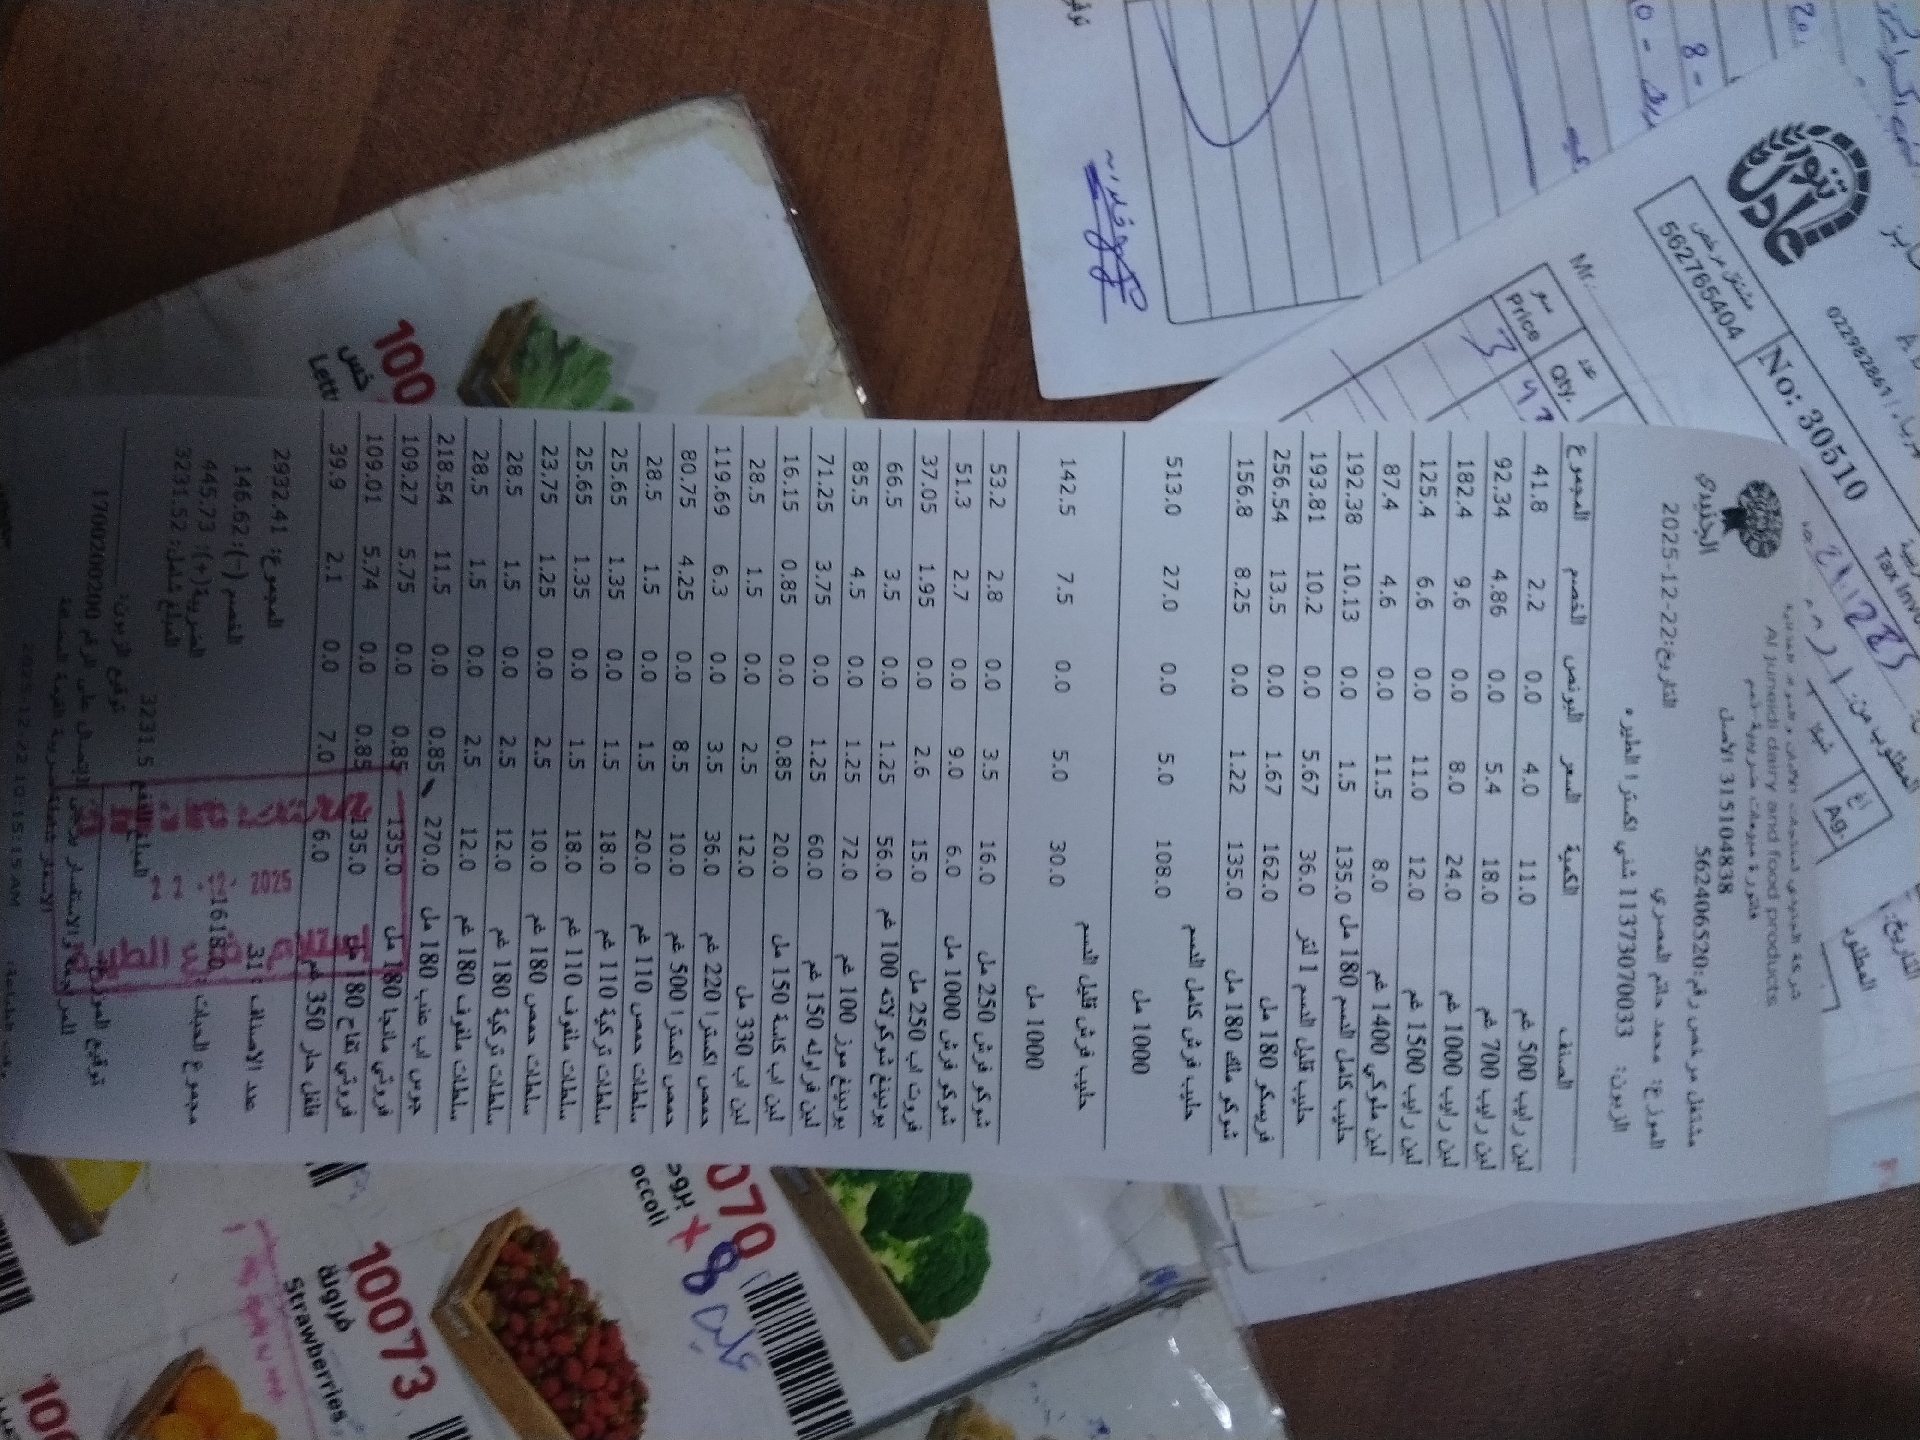 الجنيدي
شركة الجنيدي لمنتجات الالبان والمواد الغذائية
Al juneidi dairy and food products
فاتورة مبيعات ضريبية
315104838 الاصل
مشتغل مرخص رقم:562406520
التاريخ:22-12-2025
الموزع: محمد حاتم المصري
الزبون: 1137307003 شني اكسترا الطيره
الصنف الكمية السعر البونص الخصم المجموع
لبن رايب 500 غم 11.0 4.0 0.0 2.2 41.8
لبن رايب 700 غم 18.0 5.4 0.0 4.86 92.34
لبن رايب 1000 غم 24.0 8.0 0.0 9.6 182.4
لبن رايب 1500 غم 12.0 11.0 0.0 6.6 125.4
لبن ملوكي 1400 غم 8.0 11.5 0.0 4.6 87.4
حليب كامل الدسم 180 مل 135.0 1.5 0.0 10.13 192.38
حليب قليل الدسم 1 لتر 36.0 5.67 0.0 10.2 193.81
فريسكو 180 مل 162.0 1.67 0.0 13.5 256.54
شوكو ملك 180 مل 135.0 1.22 0.0 8.25 156.8
حليب فرش كامل الدسم 1000 مل 108.0 5.0 0.0 27.0 513.0
حليب فرش قليل الدسم 1000 مل 30.0 5.0 0.0 7.5 142.5
شوكو فرش 250 مل 16.0 3.5 0.0 2.8 53.2
شوكو فرش 1000 مل 6.0 9.0 0.0 2.7 51.3
فروت اب 250 مل 15.0 2.6 0.0 1.95 37.05
بودينغ شوكولاته 100 غم 56.0 1.25 0.0 3.5 66.5
بودينغ موز 100 غم 72.0 1.25 0.0 4.5 85.5
لبن فراوله 150 غم 60.0 1.25 0.0 3.75 71.25
لبن اب كاسة 150 مل 20.0 0.85 0.0 0.85 16.15
لبن اب 330 مل 12.0 2.5 0.0 1.5 28.5
حمص اكسترا 220 غم 36.0 3.5 0.0 6.3 119.69
حمص اكسترا 500 غم 10.0 8.5 0.0 4.25 80.75
سلطات حمص 110 غم 20.0 1.5 0.0 1.5 28.5
سلطات تركية 110 غم 18.0 1.5 0.0 1.35 25.65
سلطات ملفوف 110 غم 18.0 1.5 0.0 1.35 25.65
سلطات حمص 180 غم 10.0 2.5 0.0 1.25 23.75
سلطات تركية 180 غم 12.0 2.5 0.0 1.5 28.5
سلطات ملفوف 180 غم 12.0 2.5 0.0 1.5 28.5
جوس اب عنب 180 مل 270.0 0.85 0.0 11.5 218.54
فروتي مانجا 180 مل 135.0 0.85 0.0 5.75 109.27
فروتي تفاح 180 مل 135.0 0.85 0.0 5.74 109.01
فلفل حار 350 غم 6.0 7.0 0.0 2.1 39.9
عدد الاصناف :31
المجموع: 2932.41
مجموع الحبات :1618.0
الخصم (-): 146.62
الضريبة(+): 445.73
3231.5
المبلغ شامل: 3231.52
22 -12- 2025
توقيع الزبون:
1700200200
2025-12-22 10:15:15 AM
تنور
عادل
مشتغل مرخص
562765404
No: 30510
022982861
Tax Inv
المطلوب من:
التاريخ:
Mr.
سعر
Price
عدد
QTY.
100
خس
Lett
070
برو
occoli
8
10073
فراولة
Strawberries